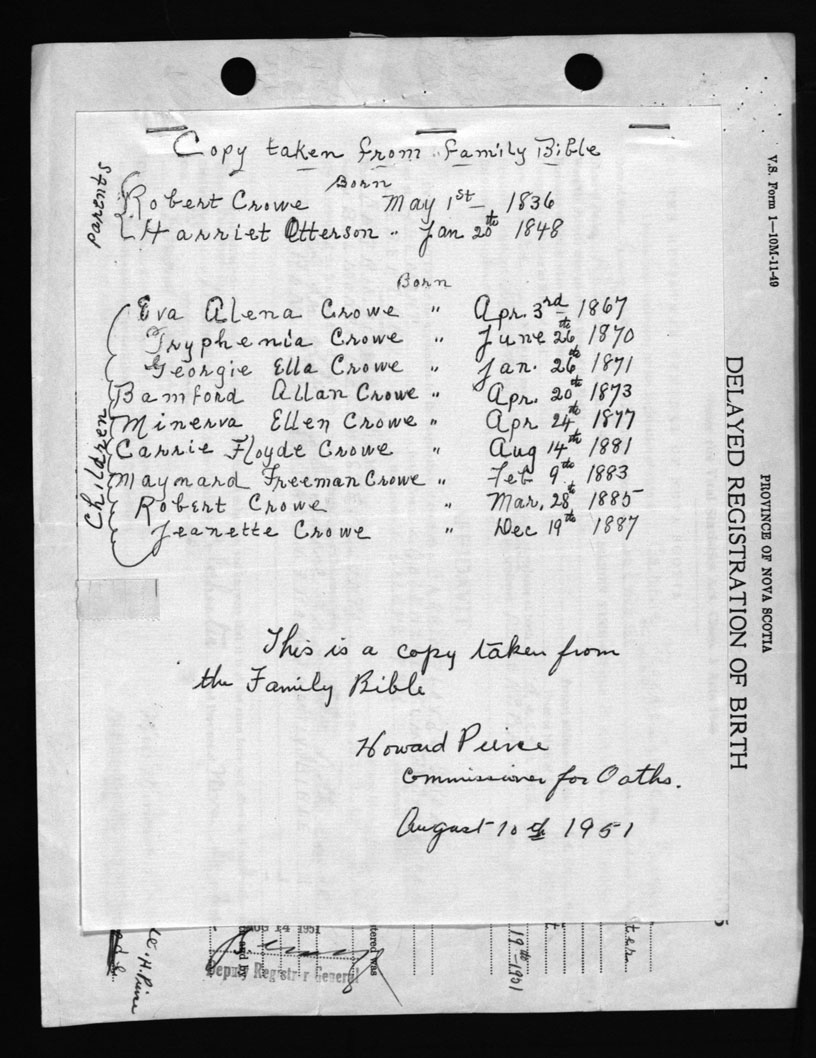 Copy taken from Family Bible
Born
Parents
Robert Crowe May 1st 1836
Harriet Otterson " Jan 20th 1848
Born
Children
Eva Alena Crowe " Apr. 3rd 1867
Tryphenia Crowe " June 26th 1870
Georgie Ella Crowe " Jan. 26th 1871
Bamford Allan Crowe " Apr. 20th 1873
Minerva Ellen Crowe " Apr 24th 1877
Carrie Floyde Crowe " Aug 14th 1881
Maynard Freeman Crowe " Feb 9th 1883
Robert Crowe " Mar. 28th 1885
Jeanette Crowe " Dec 19th 1887
This is a copy taken from
the Family Bible
Howard Peirce
Commissioner for Oaths.
August 10th 1951
V.S. Form 1—10M-11-49
PROVINCE OF NOVA SCOTIA
DELAYED REGISTRATION OF BIRTH
AUG 14 1951
Deputy Registrar General
tered was
19th-1951